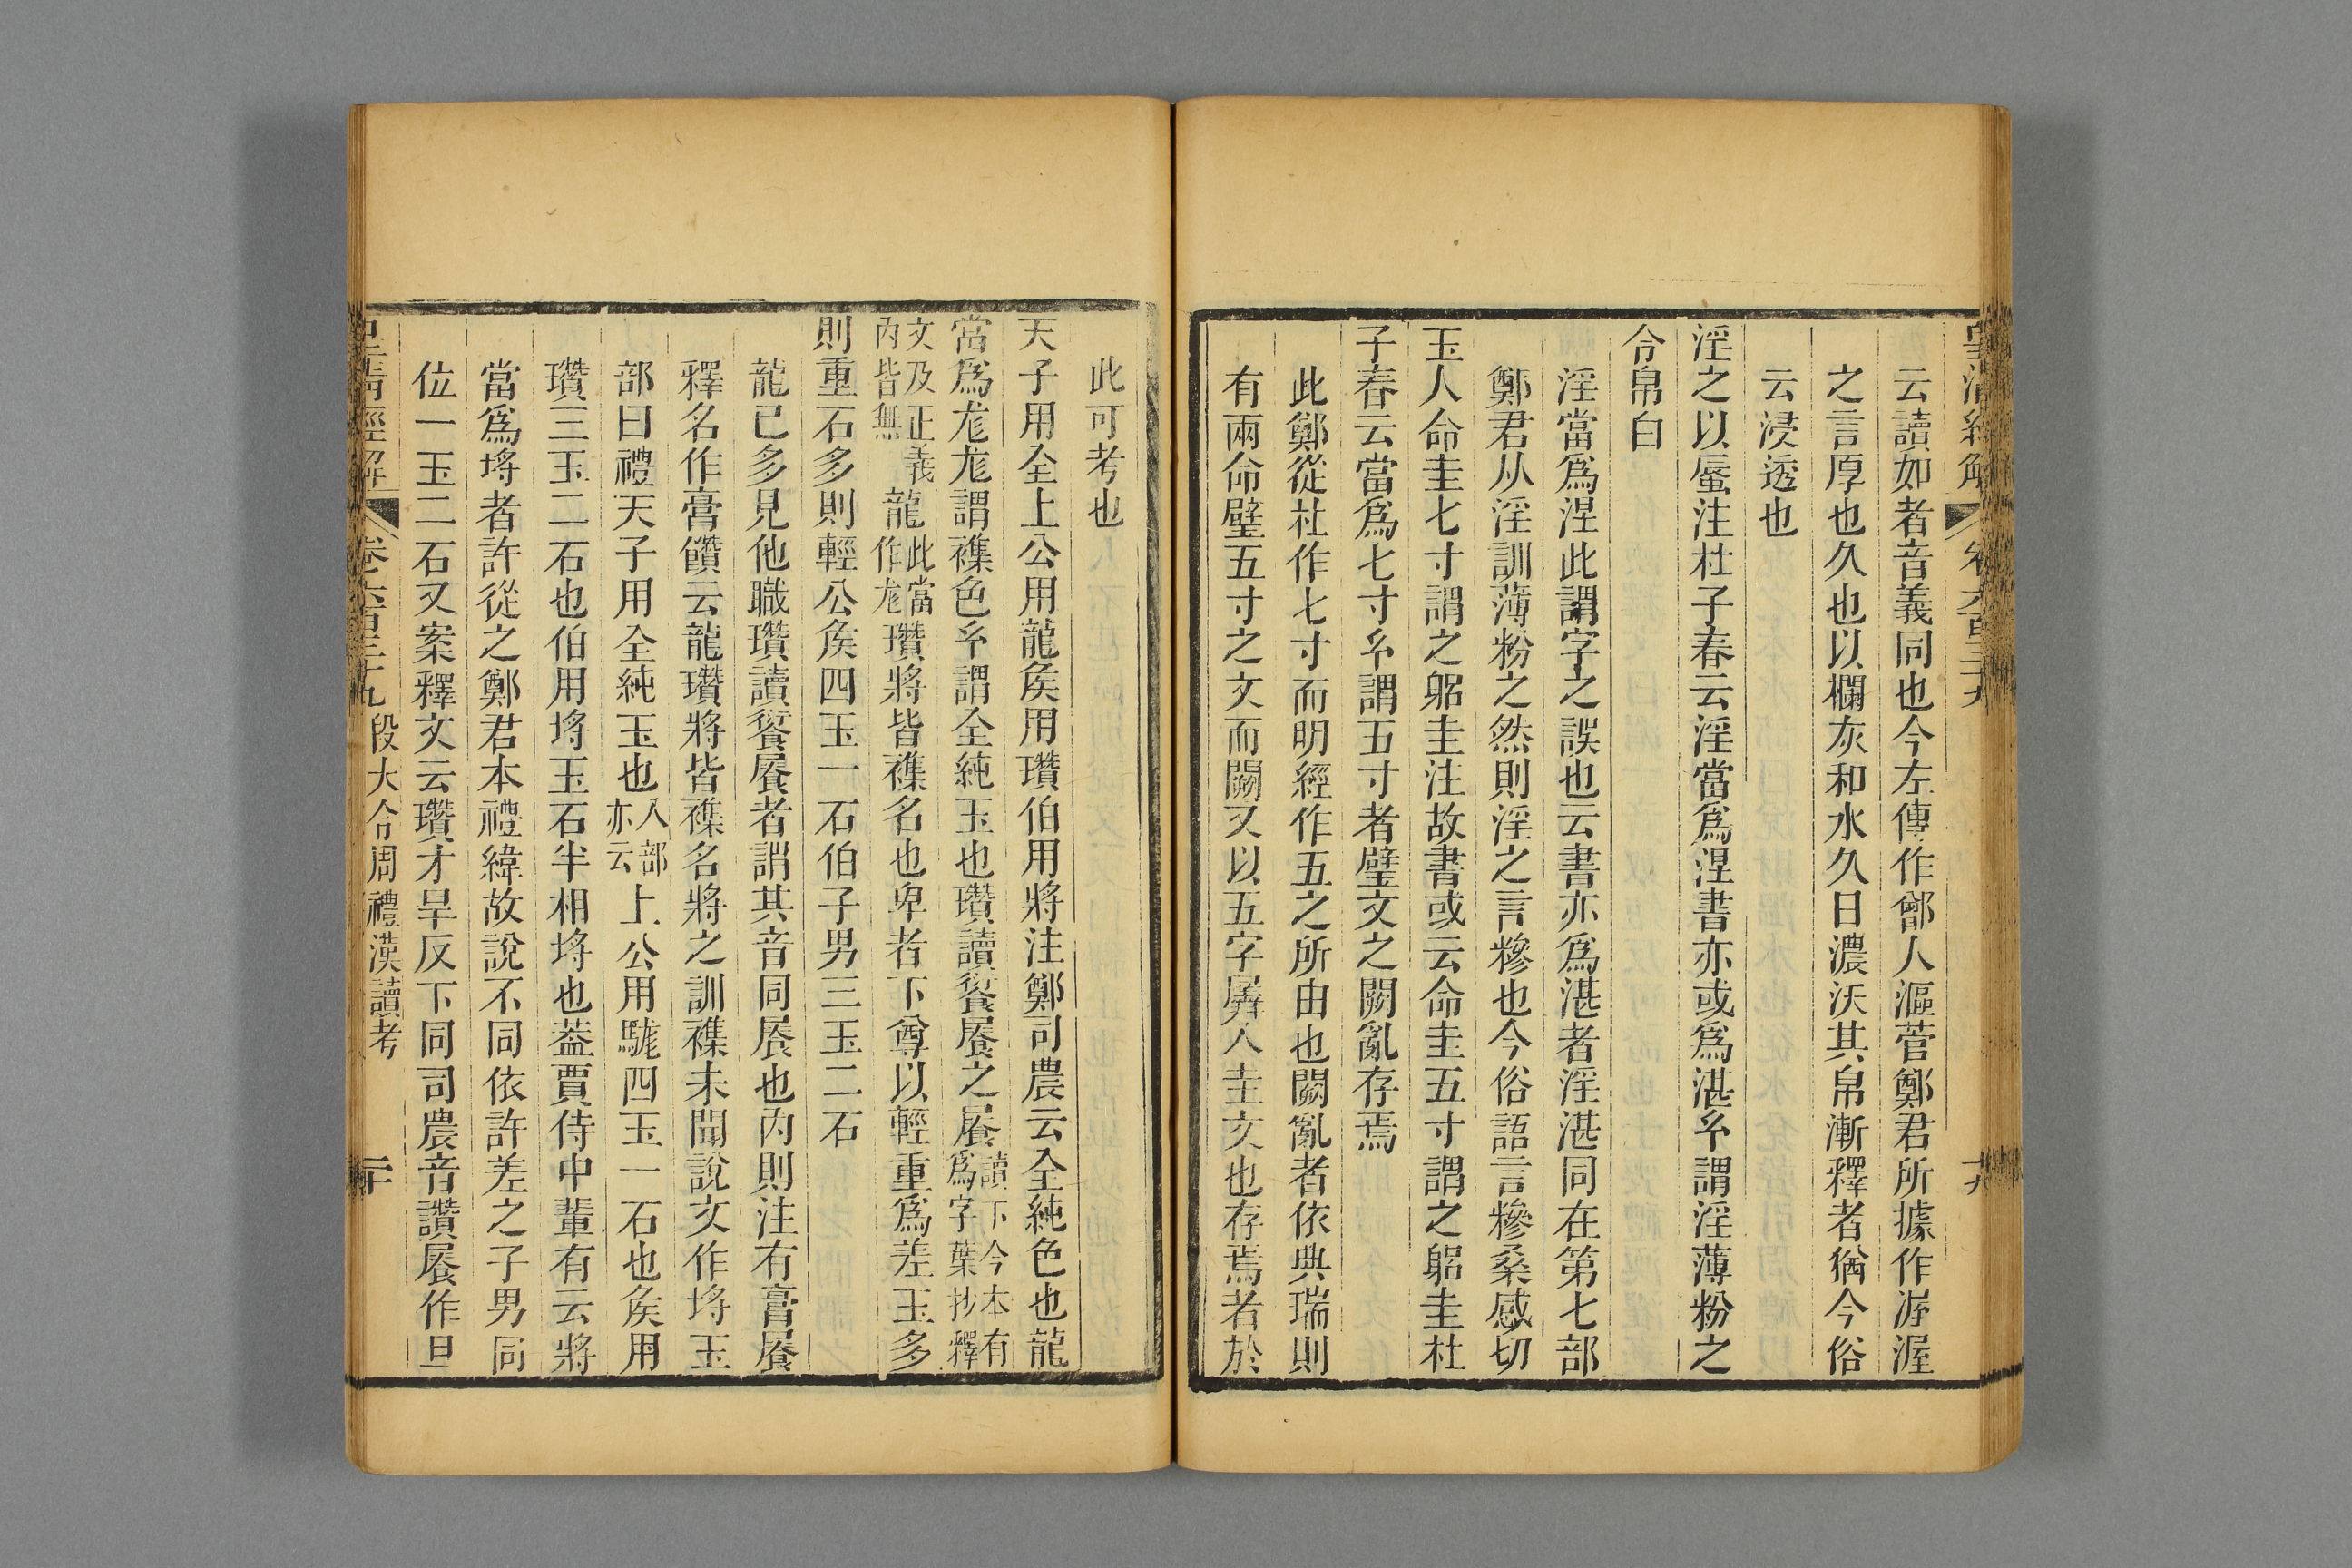 皇清經解 卷六百三十九 十九
云讀如者音義同也今左傳作鄫人漚菅鄭君所據作渥渥
之言厚也久也以欄灰和水久日濃沃其帛漸釋者猶今俗
云浸透也
淫之以蜃注杜子春云淫當爲涅書亦或爲湛𤣥謂淫薄粉之
令帛白
淫當爲涅此謂字之誤也云書亦爲湛者淫湛同在第七部
鄭君从淫訓薄粉之然則淫之言糝也今俗語言糝桑感切
玉人命圭七寸謂之躳圭注故書或云命圭五寸謂之躳圭杜
子春云當爲七寸𤣥謂五寸者璧文之闕亂存焉
此鄭從杜作七寸而明經作五之所由也闕亂者依典瑞則
有兩命璧五寸之文而闕又以五字羼入圭文也存焉者於
此可考也
天子用全上公用龍矦用瓚伯用將注鄭司農云全純色也龍
當爲尨尨謂襍色𤣥謂全純玉也瓚讀餐㞡之㞡讀下今本有爲字葉抄釋
文及正義內皆無龍此當作尨瓚將皆襍名也卑者下尊以輕重爲差玉多
則重石多則輕公矦四玉一石伯子男三玉二石
龍已多見他職瓚讀餐㞡者謂其音同㞡也內則注有膏㞡
釋名作膏饡云龍瓚將皆襍名將之訓襍未聞說文作埒玉
部曰禮天子用全純玉也入部亦云上公用駹四玉一石也矦用
瓚三玉二石也伯用埒玉石半相埒也葢賈侍中輩有云將
當爲埒者許從之鄭君本禮緯故說不同依許差之子男同
位一玉二石又案釋文云瓚才旱反下同司農音讚㞡作旦
皇清經解 卷六百三十九 段大令周禮漢讀考 二十